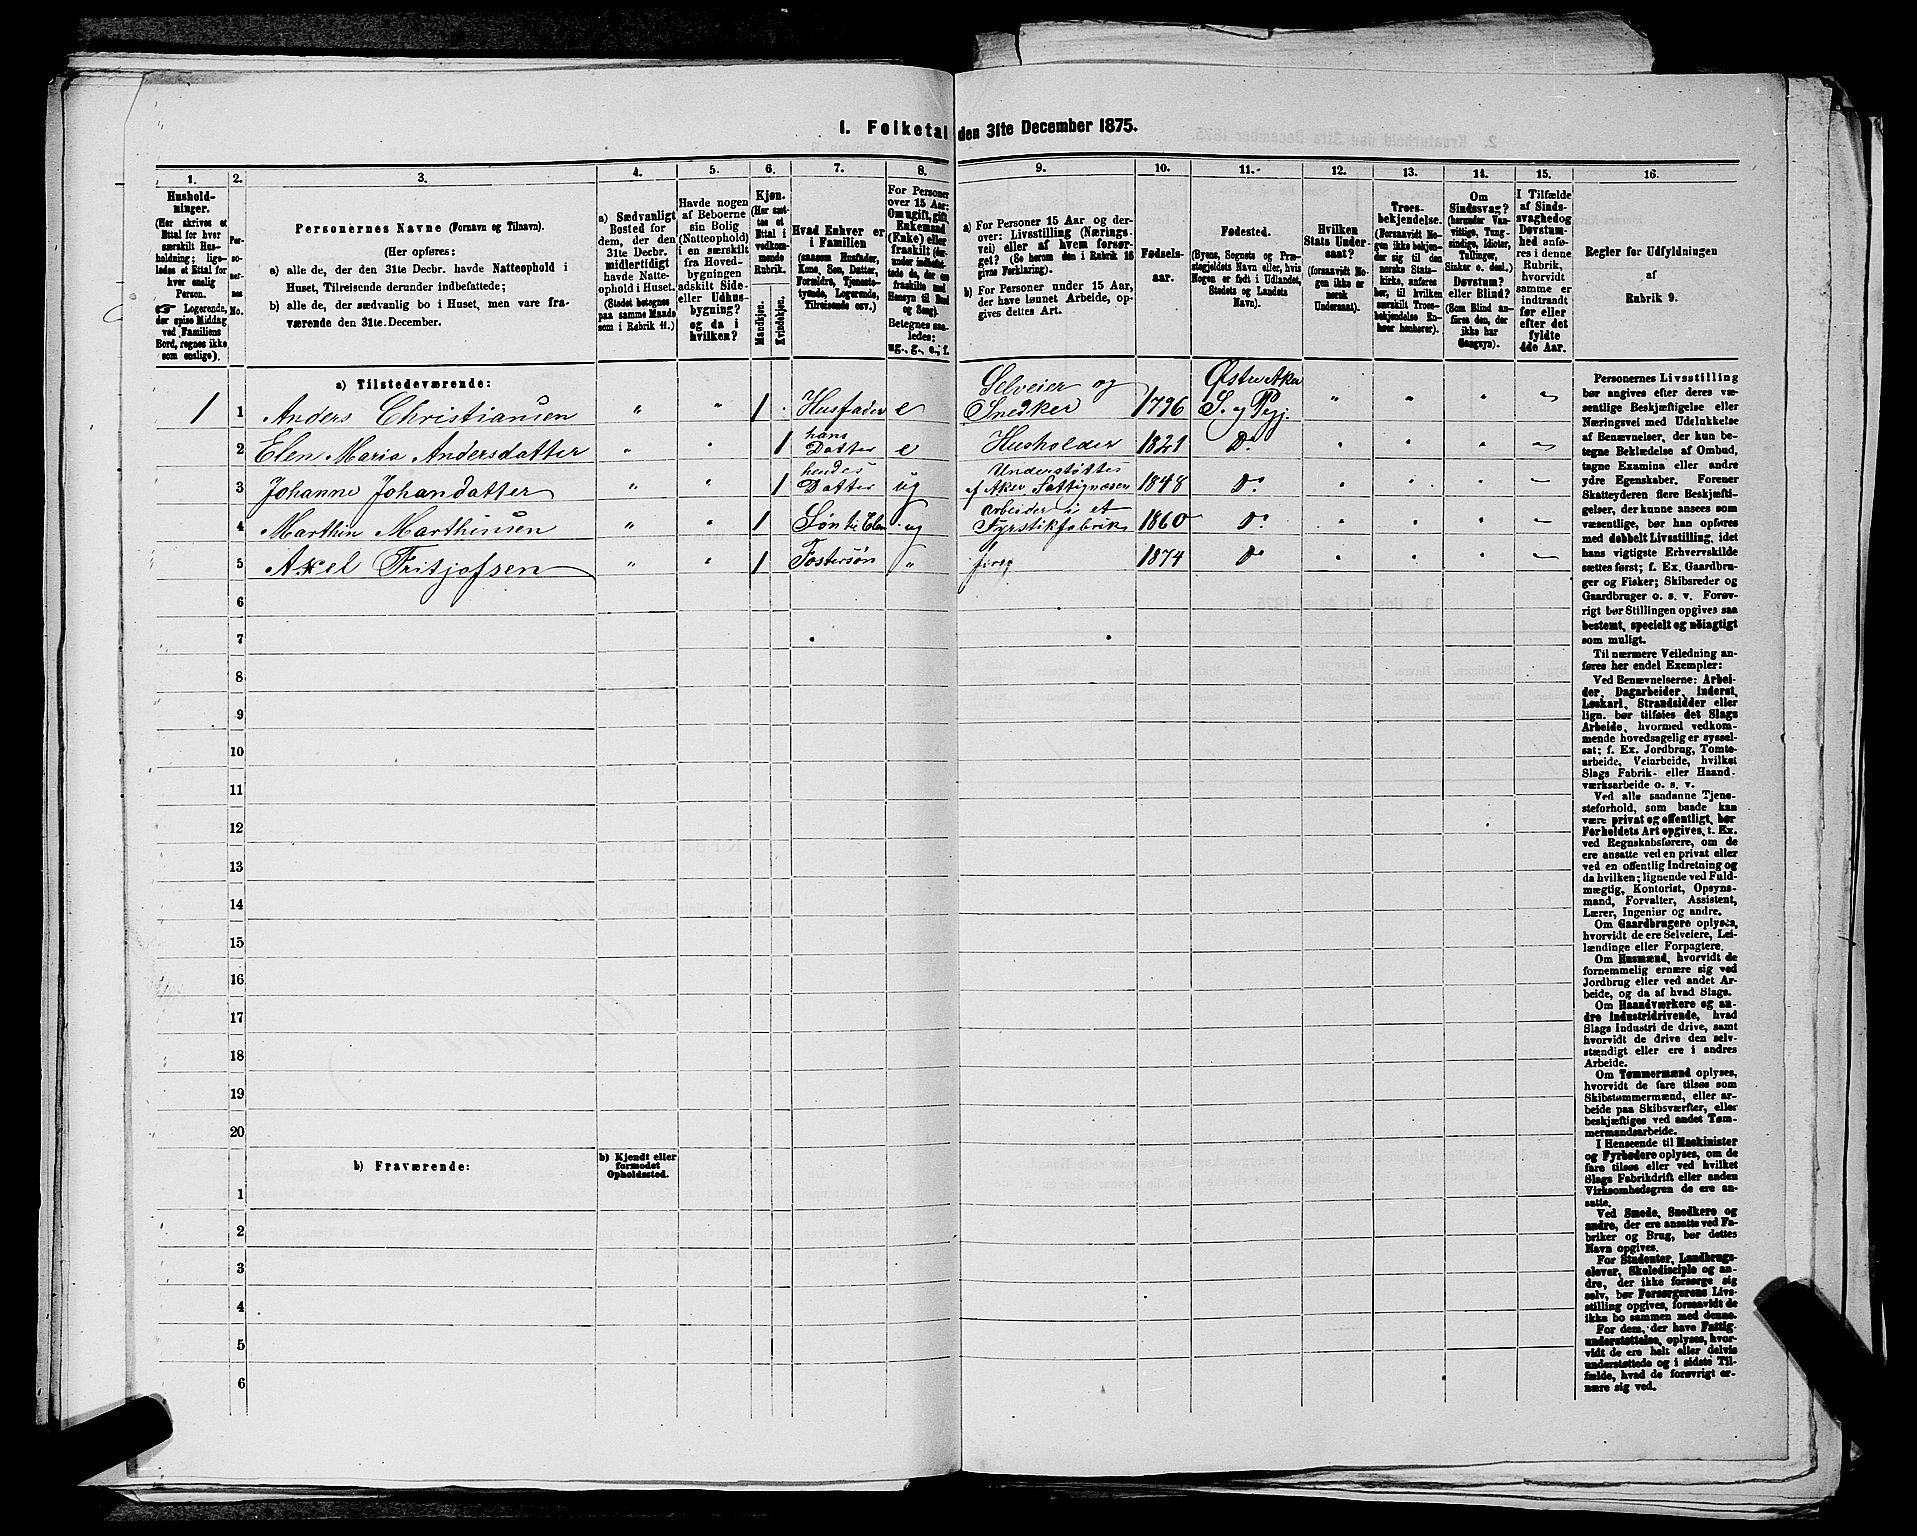 1. Folketal den 31te December 1875.
1. 2. 3. 4. 5. 6. 7. 8. 9. 10. 11. 12. 13. 14. 15. 16.
Hushold-
ninger.
(Her skrives et
Ettal for hver
særskilt Hus-
holdning; lige-
ledes et Ettal for
hver enslig
Person.
☞ Logerende,
der spise Middag
ved Familiens
Bord, regnes ikke
som enslige).
Per-
so-
ner-
nes
No.
Personernes Navne (Fornavn og Tilnavn).
(Her opføres:
a) alle de, der den 31te Decbr. havde Natteophold i
Huset, Tilreisende derunder indbefattede;
b) alle de, der sædvanlig bo i Huset, men vare fra-
værende den 31te. December.
a) Sædvanligt
Bosted for
dem, der den
31te Decbr.
midlertidigt
havde Natte-
ophold i Huset.
(Stedet betegnes
paa samme Maade
som i Rubrik 11.)
Havde nogen
af Beboerne
sin Bolig
(Natteophold)
i en særskilt
fra Hoved-
bygningen
adskilt Side-
eller Udhus-
bygning?
og da i
hvilken?
Kjøn.
(Her sæt-
tes et
Ettal i
vedkom-
mende
Rubrik.
Mandkjøn.
Kvindekjøn.
Hvad Enhver er
i Familien
(saasom Husfader,
Kone, Søn, Datter,
Forældre, Tjeneste-
tyende, Logerende,
Tilreisende osv.)
For Personer
over 15 Aar:
Om ugift, gift,
Enkemand
(Enke) eller
fraskilt (der-
under indbefat-
tede de, der ere
fraskilte med
Hensyn til Bord
og Seng).
Betegnes saa-
ledes:
ug., g., e., f.
a) For Personer 15 Aar og der-
over: Livsstilling (Nærings-
vei) eller af hvem forsør-
get? (Se herom den i Rubrik 16
givne Forklaring).
b) For Personer under 15 Aar,
der have lønnet Arbeide, op-
gives dettes Art.
Fødsels-
aar.
Fødested.
(Byens, Sognets og Præ-
stegjeldets Navn eller, hvis
Nogen er født i Udlandet,
Stedets og Landets
Navn).
Hvilken
Stats Under-
saat?
(forsaavidt No-
gen ikke er
norsk
Undersaat).
Troes-
bekjendelse.
(Forsaavidt No-
gen ikke bekjen-
der sig til den
norske Stats-
kirke, anføres
her, til hvilken
særskilt Troes-
bekjendelse En-
hver henhører).
Om
Sindssvag?
(herunder Van-
vittige, Tung-
sindige, Idioter,
Tullinger,
Sinker o. desl.)
Døvstum?
eller Blind?
(Som Blind an-
føres den, der
ikke har
Gangsyn).
I Tilfælde
af Sinds-
svaghed og
Døvstum-
hed anfø-
res i denne
Rubrik,
hvorvidt
samme er
indtraadt
før eller
efter det
fyldte
4de Aar.
Regler for Udfyldningen
af
Rubrik 9.
a) Tilstedeværende:
1 1 Anders Christiansen " " 1 . Husfader e Selveier og Snedker 1796 Østre Aker S. og Pgj. " " " "
2 Elen Maria Andersdatter " " 1 hans Datter e Husholder 1821 Do " " " "
3 Johanne Johandatter " " 1 hendes Datter ug Understøttes af Aker Fattigvæsen 1848 Do " " " "
4 Marthin Marthinsen " " 1 Søn til Elen ug Arbeider i et Fyrstikfabrik 1860 Do " " " "
5 Axel Fritjofsen " " 1 Fostersøn " 1874 Do " " " "
6
7
8
9
10
11
12
13
14
15
16
17
18
19
20
b) Fraværende:
b) Kjendt eller
formodet
Opholdssted.
1
2
3
4
5
6
Personernes Livsstilling
bør angives efter deres væ-
sentlige Beskjæftigelse eller
Næringsvei med Udelukkelse
af Benævnelser, der kun be-
tegne Beklædelse af Ombud,
tagne Examina eller andre
ydre Egenskaber. Forener
Skatteyderen flere Beskjæfti-
gelser, der kunne ansees som
væsentlige, bør han opføres
med dobbelt Livsstilling, idet
hans vigtigste Erhvervskilde
sættes først; f. Ex. Gaardbru-
ger og Fisker; Skibsreder og
Gaardbruger o. s. v. Forøv-
rigt bør Stillingen opgives saa
bestemt, specielt og nøiagtigt
som muligt.
Til nærmere Veiledning an-
føres her endel Exempler:
Ved Benævnelserne: Arbei-
der, Dagarbeider, Inderst,
Løskarl, Strandsidder eller
lign. bør tilføies det Slags
Arbeide, hvormed vedkom-
mende hovedsagelig er syssel-
sat; f. Ex. Jordbrug, Tomte-
arbeide, Veiarbeide, hvilket
Slags Fabrik- eller Haand-
værksarbeide o. s. v.
Ved alle saadanne Tjene-
steforhold, som baade kan
være privat og offentligt, bør
Forholdets Art opgives, t. Ex.
ved Regnskabsførere, om de
ere ansatte ved en privat eller
ved en offentlig Indretning og
da hvilken; lignende ved Fuld-
mægtig, Kontorist, Opsyns-
mand, Forvalter, Assistent,
Lærer, Ingeniør og andre.
Om Gaardbrugere oplyses,
hvorvidt de ere Selveiere, Lei-
lændinge eller Forpagtere.
Om Husmænd, hvorvidt de
fornemmelig ernære sig ved
Jordbrug eller ved andet Ar-
beide, og da af hvad Slags.
Om Haandværkere og an-
dre Industridrivende, hvad
Slags Industri de drive, samt
hvorvidt de drive den selv-
stændigt eller ere i andres
Arbeide.
Om Tømmermænd oplyses,
hvorvidt de fare tilsøs som
Skibstømmermænd, eller ar-
beide paa Skibsværfter, eller
beskjæftiges ved andet Tøm-
mermandsarbeide.
I Henseende til Maskinister
og Fyrbødere oplyses, om de
fare tilsøs eller ved hvilket
Slags Fabrikdrift eller anden
Virksomhedsgren de ere an-
satte.
Ved Smede, Snedkere og
andre, der ere ansatte ved Fa-
briker og Brug, bør dettes
Navn opgives.
For Studenter, Landbrugs-
elever, Skoledisciple og an-
dre, der ikke forsørge sig
selv, bør Forsørgerens Livs-
stilling opgives, forsaavidt de
ikke bo sammen med denne.
For dem, der have Fattig-
understøttelse, oplyses, hvor-
vidt de ere helt eller delvis
understøttede og i sidste Til-
fælde, hvad de forøvrigt er-
nære sig ved.